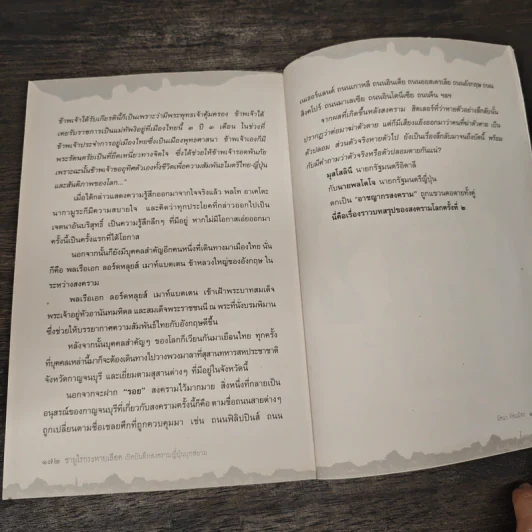 ข้าพเจ้าได้รับเกียรตินี้ก็เป็นเพราะว่ามีพระพุทธเจ้าคุ้มครอง ข้าพเจ้าได้
เคยรับราชการเป็นแม่ทัพใหญ่อยู่ที่เมืองไทยนี้ ๓ ปี ๓ เดือน ในช่วงที่
ข้าพเจ้าประจำการอยู่เมืองไทยซึ่งเป็นเมืองพุทธศาสนา ข้าพเจ้าเองก็มี
พระรัตนตรัยเป็นที่ยึดเหนี่ยวทางจิตใจ ซึ่งได้ช่วยให้ข้าพเจ้ารอดพ้นภัย
เพราะฉะนั้นข้าพเจ้าขออุทิศตัวเองทั้งชีวิตเพื่อความสัมพันธไมตรีไทย-ญี่ปุ่น
และสันติภาพของโลก..."
เมื่อได้กล่าวแสดงความรู้สึกออกมาจากใจจริงแล้ว พลโท อาเคโตะ
นากามูระก็มีความสบายใจ และคิดว่าทุกประโยคที่กล่าวออกไปเป็น
เจตนาอันบริสุทธิ์ เป็นความรู้สึกลึกๆ ที่มีอยู่ หากไม่มีโอกาสเอ่ยออกมา
ครั้งนี้เป็นครั้งแรกที่ได้โอกาส
นอกจากนั้นก็ยังมีบุคคลสำคัญอีกคนหนึ่งที่เดินทางมาเมืองไทย นั่น
ก็คือ พลเรือเอก ลอร์ดหลุยส์ เมาท์แบตเตน ข้าหลวงใหญ่ของอังกฤษ ใน
ระหว่างสงคราม
พลเรือเอก ลอร์ดหลุยส์ เมาท์แบตเตน เข้าเฝ้าพระบาทสมเด็จ
พระเจ้าอยู่หัวอานันทมหิดล และสมเด็จพระราชชนนี ณ พระที่นั่งบรมพิมาน
ซึ่งช่วยให้บรรยากาศความสัมพันธ์ไทยกับอังกฤษดีขึ้น
หลังจากนั้นบุคคลสำคัญๆ ของโลกก็เวียนกันมาเยือนไทย ทุกครั้ง
ที่บุคคลเหล่านี้มาก็จะต้องเดินทางไปวางพวงมาลาที่สุสานทหารสหประชาชาติ
จังหวัดกาญจนบุรี และเยี่ยมตามสุสานต่างๆ ที่มีอยู่ในจังหวัดนี้
นอกจากจะฝาก "รอย" สงครามไว้มากมาย สิ่งหนึ่งที่กลายเป็น
อนุสรณ์ของกาญจนบุรีที่เกี่ยวกับสงครามครั้งนี้ก็คือ ตามชื่อถนนสายต่างๆ
ถูกเปลี่ยนตามชื่อเชลยศึกที่ถูกควบคุมมา เช่น ถนนฟิลิปปินส์ ถนน
๑๗๒ ซามูไรกระหายเลือด เปิดบันทึกสงครามญี่ปุ่นบุกสยาม
เนเธอร์แลนด์ ถนนเกาหลี ถนนอินเดีย ถนนออสเตรเลีย ถนนอังกฤษ ถนน
สิงคโปร์ ถนนมาเลเซีย ถนนอินโดนีเซีย ถนนจีน ฯลฯ
จากผลที่เกิดขึ้นหลังสงคราม ฮิตเลอร์ที่ว่าตายอย่างลึกลับนั้น
ปรากฏว่าต่อมาฆ่าตัวตาย แต่ก็มีเสียงแย้งออกมาว่าคนที่ฆ่าตัวตาย เป็น
ตัวปลอม ส่วนตัวจริงหายตัวไป ยังเป็นเรื่องลึกลับมาจนถึงบัดนี้ พร้อม
กับมีคำถามว่าตัวจริงหรือตัวปลอมตายกันแน่?
มุสโสลินี นายกรัฐมนตรีอิตาลี
กับนายพลโตโจ นายกรัฐมนตรีญี่ปุ่น
ตกเป็น "อาชญากรสงคราม" ถูกแขวนคอตายทั้งคู่
นี่คือเรื่องราวบทสรุปของสงครามโลกครั้งที่ ๒